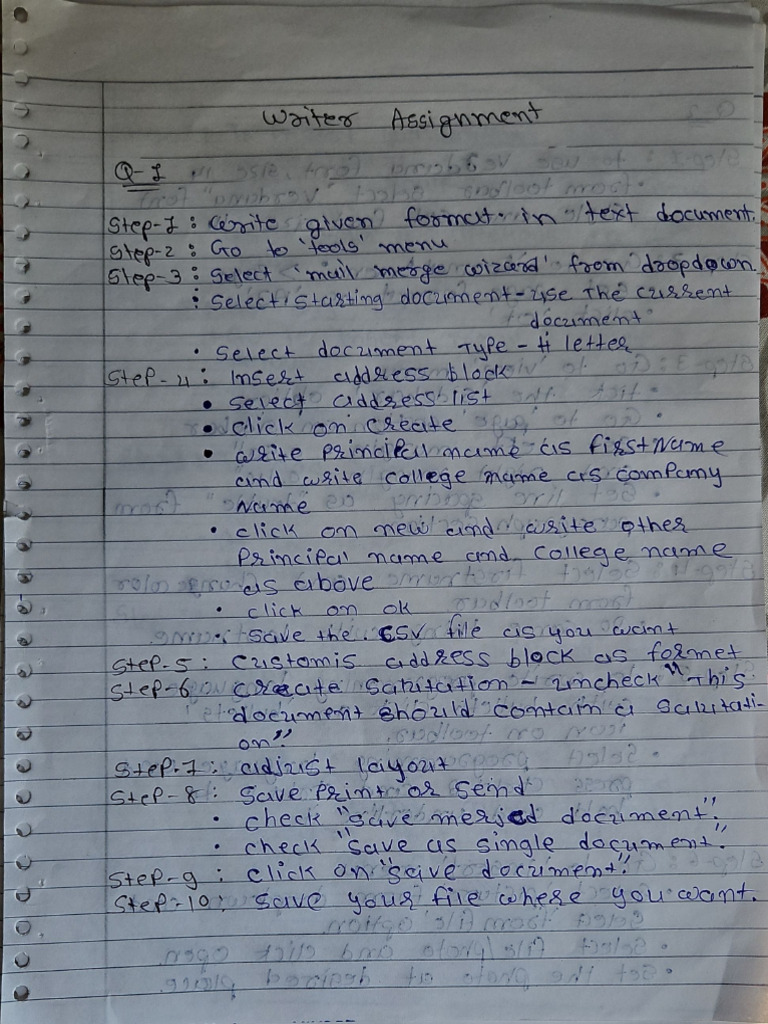 Writer Assignment
Q-1
Step-1 : Write given format in text document.
Step-2 : Go to 'tools' menu
Step-3 : Select 'mail merge wizard' from dropdown
: Select starting document - use the current
document
• Select document Type - # letter
Step-4 : Insert address block
• Select address list
• click on create
• write principal name as first Name
and write college name as company
Name
• click on new and write other
Principal name and College name
as above
• click on ok
• Save the CSV file as you want
Step-5 : Customis address block as formet
Step-6 create Salutation - uncheck "This
document should contain a salutati-
on"
Step-7 : adjust layout
Step-8 : Save print or send
• check "save merjed document."
• check "save as single document."
Step-9 : click on "save document".
Step-10 : Save your file where you want.